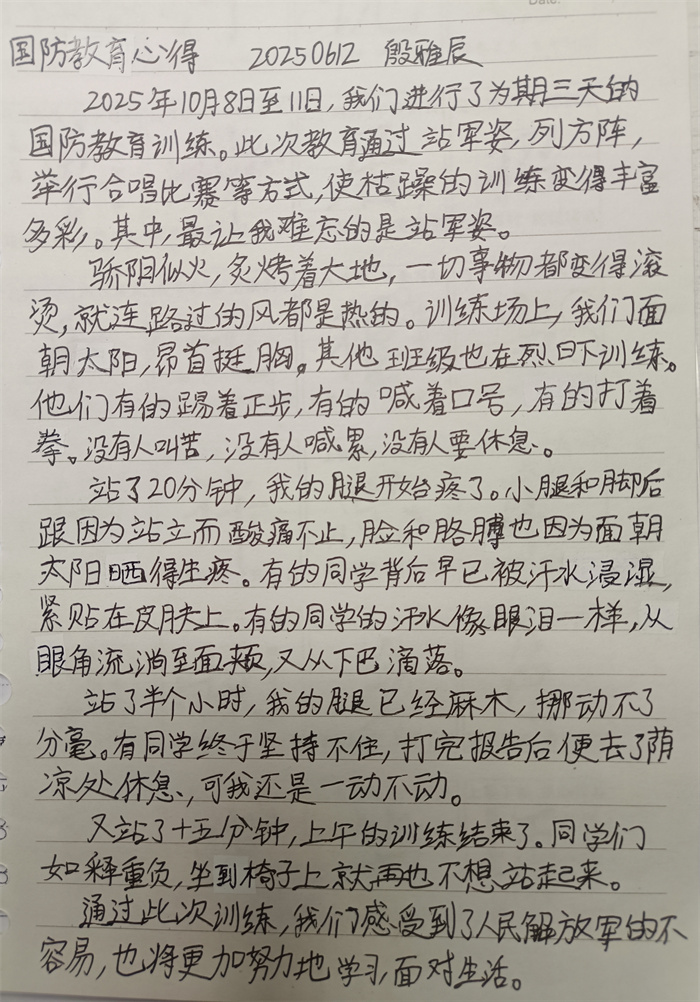 Date:
国防教育心得 20250612 殷雅辰
2025年10月8日至11日,我们进行了为期三天的
国防教育训练。此次教育通过站军姿,列方阵,
举行合唱比赛等方式,使枯躁的训练变得丰富
多彩。其中,最让我难忘的是站军姿。
骄阳似火,炙烤着大地,一切事物都变得滚
烫,就连路过的风都是热的。训练场上,我们面
朝太阳,昂首挺胸。其他班级也在烈日下训练。
他们有的踢着正步,有的喊着口号,有的打着
拳。没有人叫苦,没有人喊累,没有人要休息。
站了20分钟,我的腿开始疼了。小腿和脚后
跟因为站立而酸痛不止,脸和胳膊也因为面朝
太阳晒得生疼。有的同学背后早已被汗水浸湿,
紧贴在皮肤上。有的同学的汗水像眼泪一样,从
眼角流淌至面颊,又从下巴滴落。
站了半个小时,我的腿已经麻木,挪动不了
分毫。有同学终于坚持不住,打完报告后便去了荫
凉处休息,可我还是一动不动。
又站了十五分钟,上午的训练结束了。同学们
如释重负,坐到椅子上就再也不想站起来。
通过此次训练,我们感受到了人民解放军的不
容易,也将更加努力地学习,面对生活。